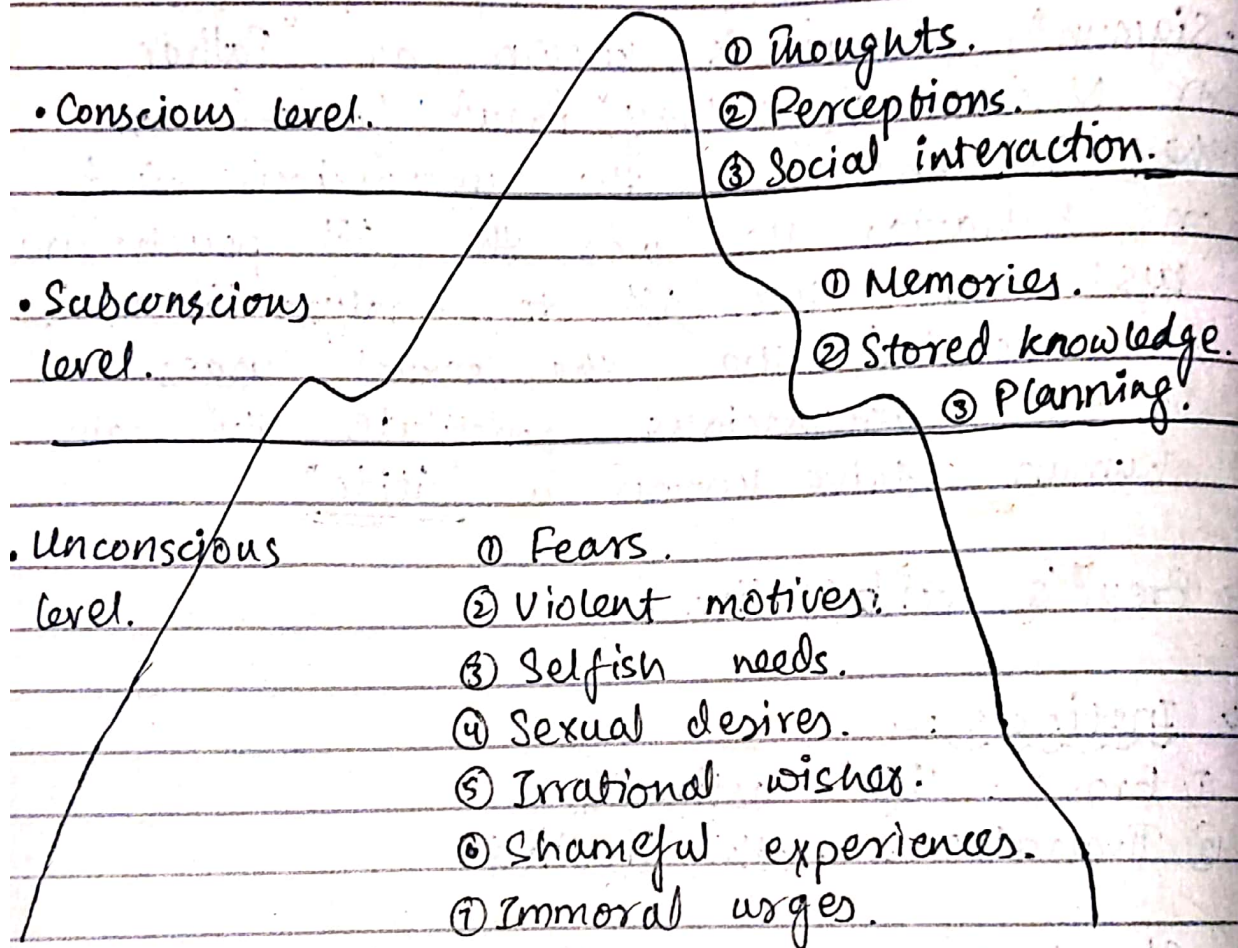 ① Thoughts.
• Conscious level.
② Perceptions.
③ Social interaction.
• Subconscious
level.
① Memories.
② Stored knowledge.
③ Planning.
• Unconscious
level.
① Fears.
② Violent motives.
③ Selfish needs.
④ Sexual desires.
⑤ Irrational wishes.
⑥ Shameful experiences.
⑦ Immoral urges.